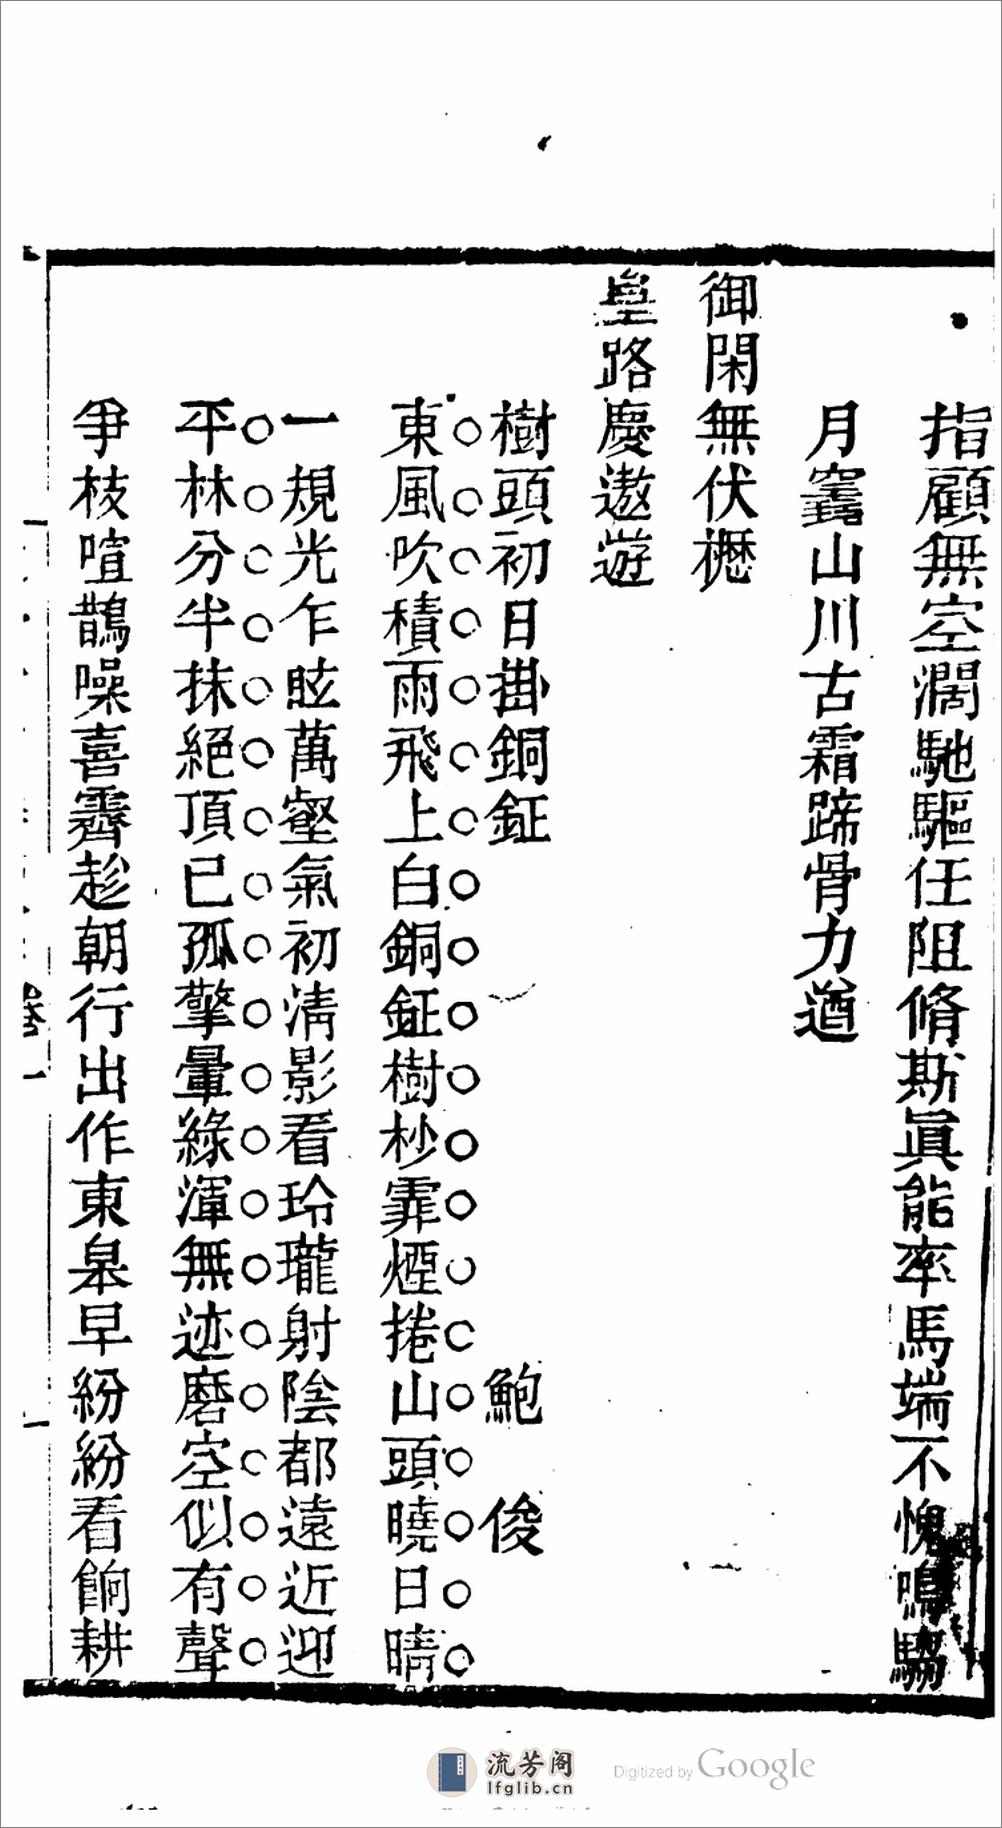 指顧無空濶馳驅任阻脩斯眞能率馬端不愧鳴騶
月窟山川古霜蹄骨力遒
御閑無伏櫪
皇路慶遨遊
樹頭初日掛銅鉦 鮑 俊
東風吹積雨飛上白銅鉦樹杪霏煙捲山頭曉日晴
一規光乍眩萬壑氣初淸影看玲瓏射陰都遠近迎
平林分半抹絕頂已孤擎暈綠渾無迹磨空似有聲
爭枝喧鵲噪喜霽趁朝行出作東皋早紛紛看餉耕
卷一
流芳阁
lfglib.cn
Digitized by Google